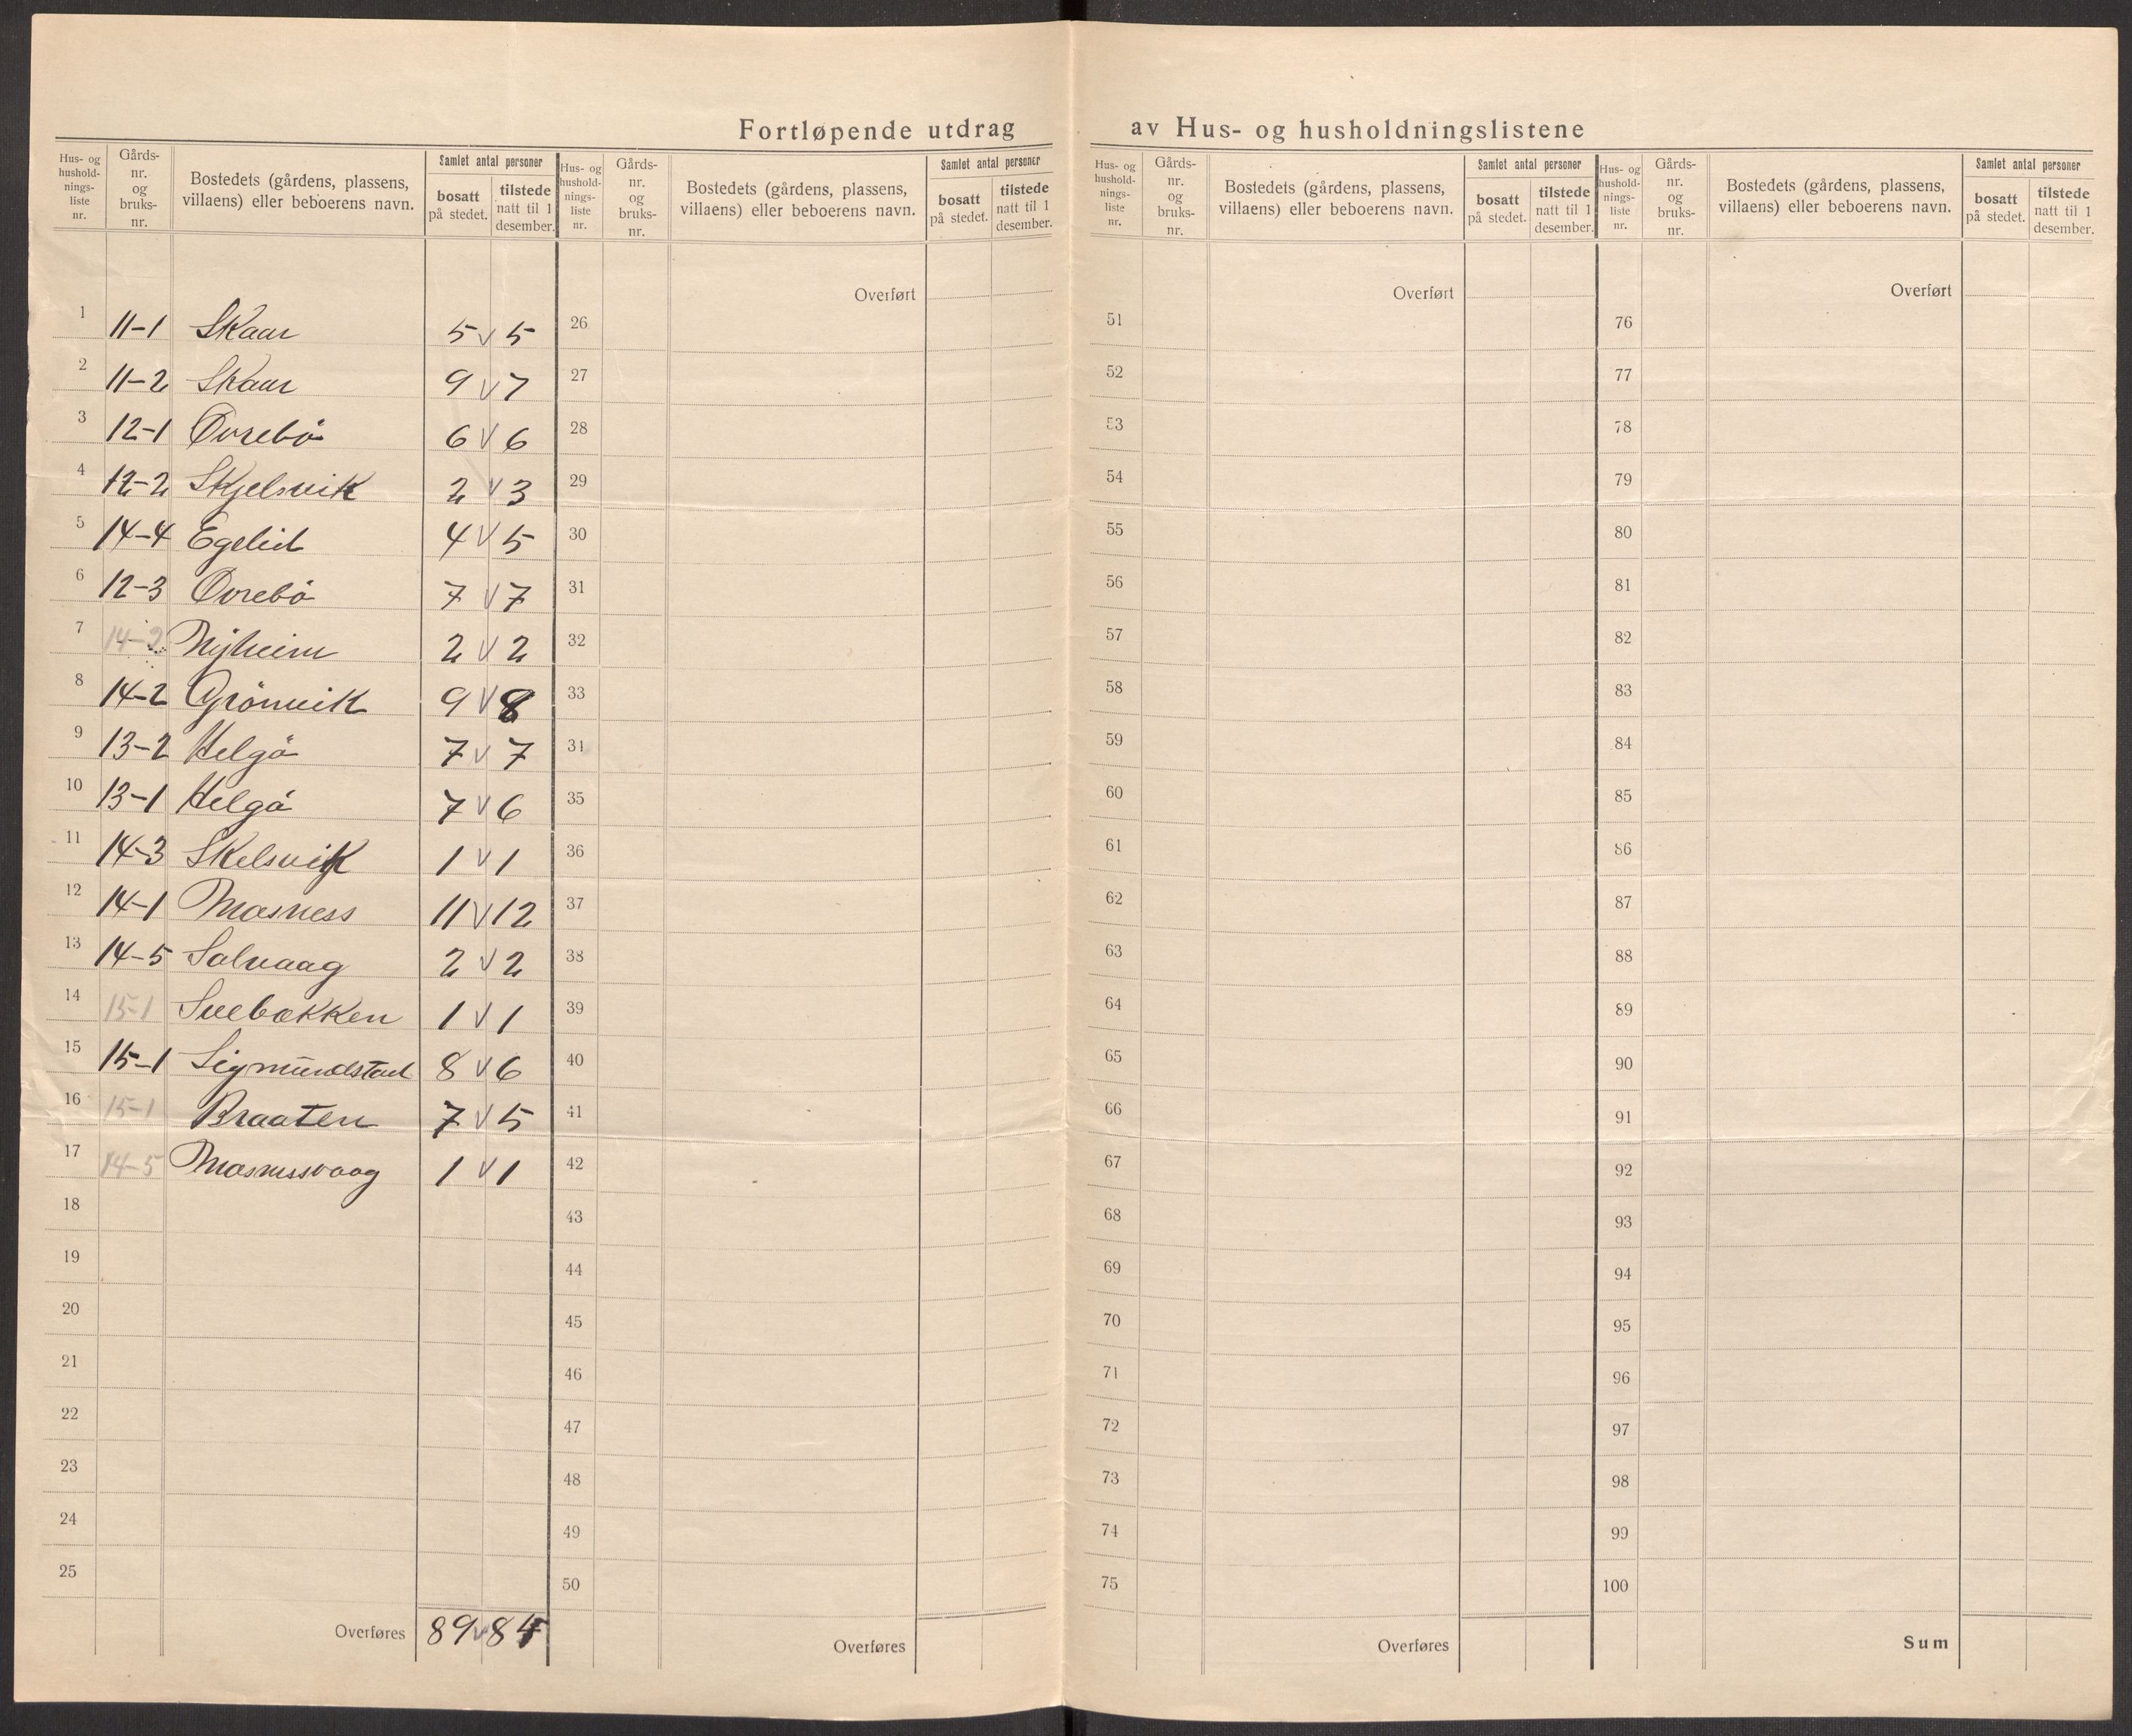 Fortløpende utdrag av Hus- og husholdningslistene
Hus- og hushold-nings-liste nr. Gårds-nr. og bruks-nr. Bostedets (gårdens, plassens, villaens) eller beboerens navn. Samlet antal personer bosatt på stedet. tilstede natt til 1 desember.
1 11-1 Skaar 5 v 5
2 11-2 Skaar 9 v 7
3 12-1 Øvrebö 6 v 6
4 12-2 Skjelsvik 2 v 3
5 14-4 Egelid 4 v 5
6 12-3 Øvrebö 7 v 7
7 14-2 Nyheim 2 v 2
8 14-2 Grönvik 9 v 8
9 13-2 Helgö 7 v 7
10 13-1 Helgö 7 v 6
11 14-3 Skelsvik 1 v 1
12 14-1 Mosness 11 v 12
13 14-5 Solvaag 2 v 2
14 15-1 Sveebakken 1 v 1
15 15-1 Sigmundstad 8 v 6
16 15-1 Braaten 7 v 5
17 14-5 Mosnessvaag 1 v 1
18
19
20
21
22
23
24
25
Overføres 89 v 84
Hus- og hushold-nings-liste nr. Gårds-nr. og bruks-nr. Bostedets (gårdens, plassens, villaens) eller beboerens navn. Samlet antal personer bosatt på stedet. tilstede natt til 1 desember.
Overført
26
27
28
29
30
31
32
33
34
35
36
37
38
39
40
41
42
43
44
45
46
47
48
49
50
Overføres
Hus- og hushold-nings-liste nr. Gårds-nr. og bruks-nr. Bostedets (gårdens, plassens, villaens) eller beboerens navn. Samlet antal personer bosatt på stedet. tilstede natt til 1 desember.
Overført
51
52
53
54
55
56
57
58
59
60
61
62
63
64
65
66
67
68
69
70
71
72
73
74
75
Overføres
Hus- og hushold-nings-liste nr. Gårds-nr. og bruks-nr. Bostedets (gårdens, plassens, villaens) eller beboerens navn. Samlet antal personer bosatt på stedet. tilstede natt til 1 desember.
Overført
76
77
78
79
80
81
82
83
84
85
86
87
88
89
90
91
92
93
94
95
96
97
98
99
100
Sum